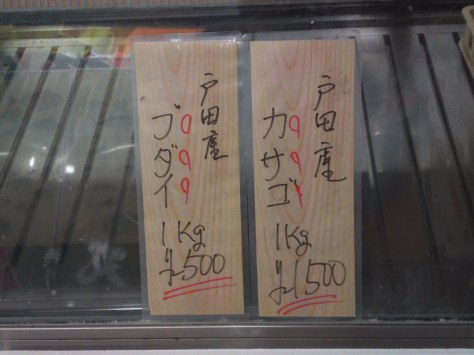 戸田産
カサゴ
1Kg
¥1,500
戸田産
ブダイ
1Kg
¥500